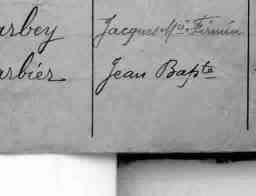 arbey Jacques M^ie Firmin
arbier Jean Bap^te